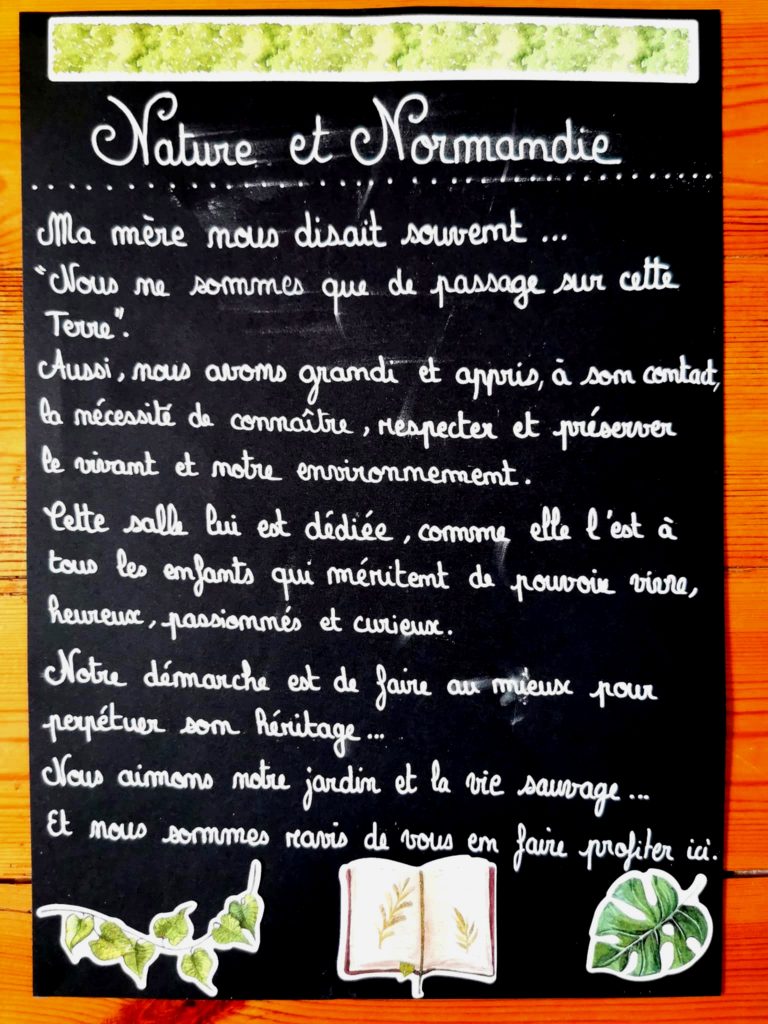 Nature et Normandie
Ma mère nous disait souvent ...
"Nous ne sommes que de passage sur cette
Terre".
Aussi, nous avons grandi et appris, à son contact,
la nécessité de connaître, respecter et préserver
le vivant et notre environnement.
Cette salle lui est dédiée, comme elle l'est à
tous les enfants qui méritent de pouvoir vivre,
heureux, passionnés et curieux.
Notre démarche est de faire au mieux pour
perpétuer son héritage...
Nous aimons notre jardin et la vie sauvage...
Et nous sommes ravis de vous en faire profiter ici.